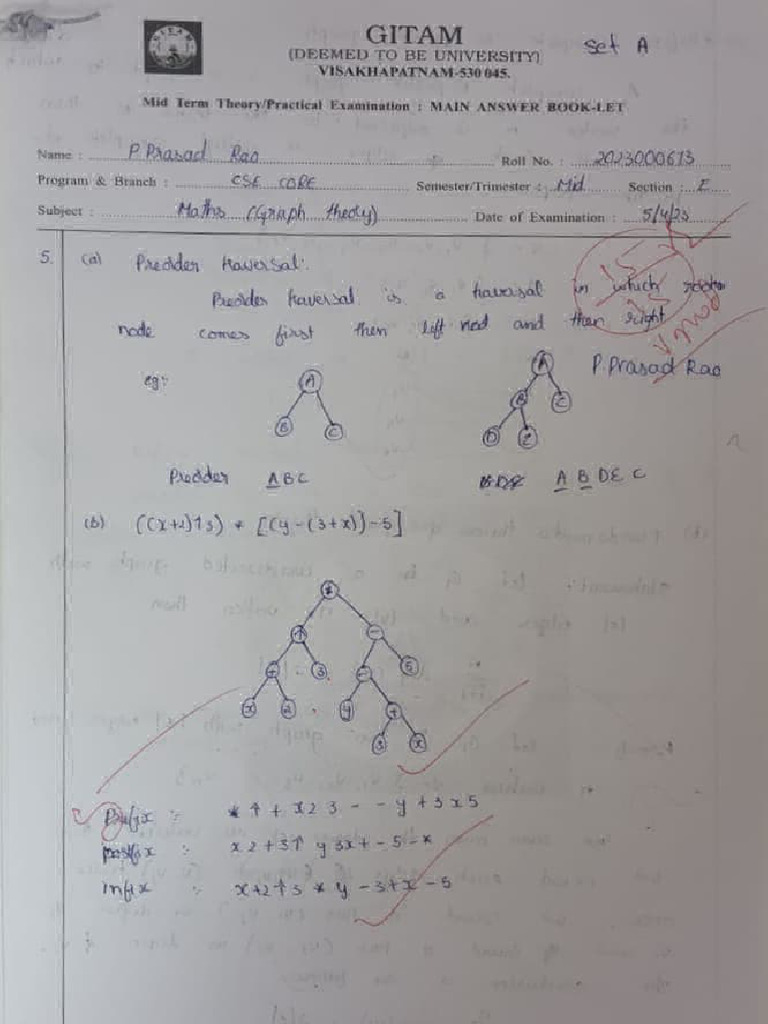 GITAM
(DEEMED TO BE UNIVERSITY)
VISAKHAPATNAM-530 045.
Set A
Mid Term Theory/Practical Examination : MAIN ANSWER BOOK-LET
Name : P Prasad Rao Roll No. : 2023000613
Program & Branch : CSE CORE Semester/Trimester : Mid Section : E
Subject : Maths (Graph theory) Date of Examination : 5/4/23
15
15
5. (a) Preorder traversal:
Preorder traversal is a traversal in which
node comes first then left and then right
P. Prasad Rao
eg:
A
B C
A
B C
D E
Preorder ABC
A B D E C
(b) ((x+2)↑3) * [(y-(3+x))-5]
*
↑ -
+ 3 - 5
x 2 y +
3 x
Prefix : * ↑ + x 2 3 - - y + 3 x 5
postfix : x 2 + 3 ↑ y 3 x + - 5 - *
infix : x+2↑3 * y - 3+x - 5